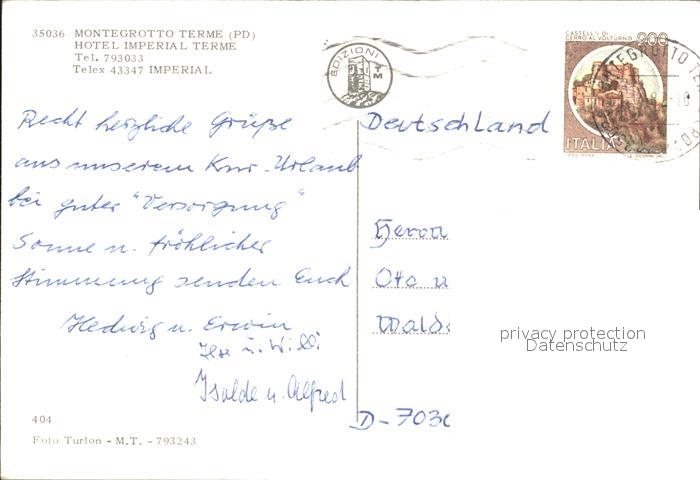 35036 MONTEGROTTO TERME (PD)
HOTEL IMPERIAL TERME
Tel. 793033
Telex 43347 IMPERIAL
EDIZIONI
CASTELLO DI
CERRO AL VOLTURNO
200
ITALIA
Deutschland
Recht herzliche Grüße
aus unserem Kur-Urlaub
bei guter "Versorgung"
Sonne u. fröhlicher
Stimmung senden Euch
Hedwig u. Erwin
Ilse u. Willi
Isolde u. Alfred
Herrn
Otto u
Walds
D-7030
privacy protection
Datenschutz
404
Foto Turlon - M.T. - 793243